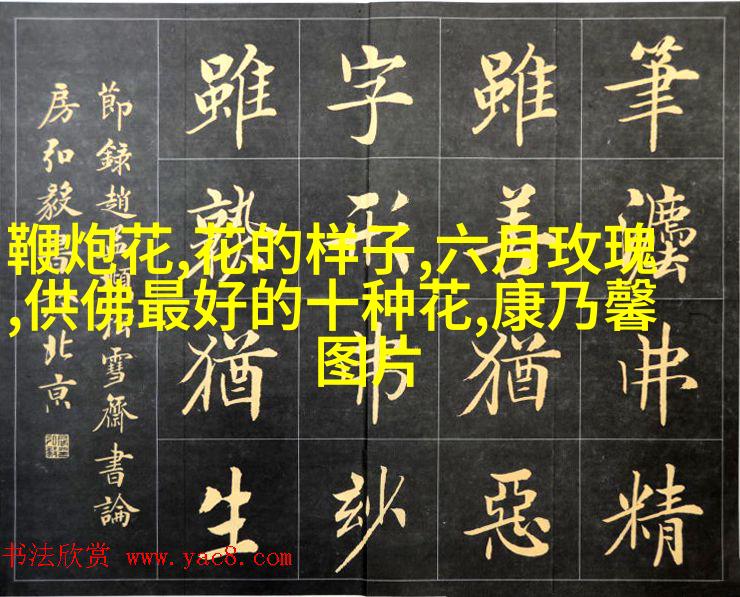 筆灋弗精
雖善猶惡
字形弗玅
雖熟猶生
節錄趙孟頫松雪齋書論
房弘毅書於北亰
鞭炮花,花的样子,六月玫瑰
,供佛最好的十种花,康乃馨
图片
书法欣赏 www.yac8.com